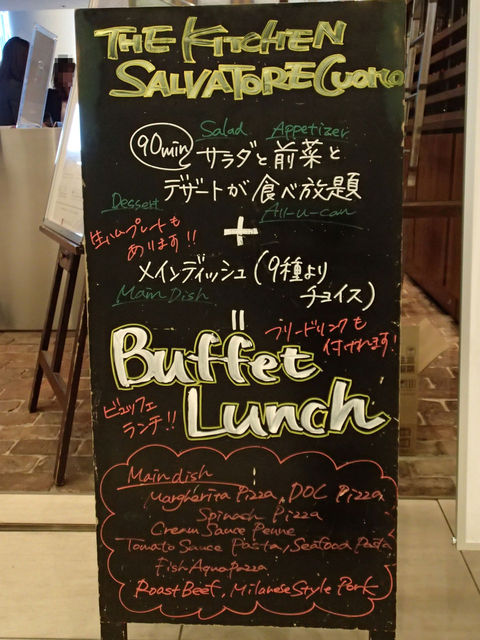 THE KITCHEN
SALVATORE CUOMO
90min
Salad Appetizer
サラダと前菜と
デザートが食べ放題
Dessert
All-u-can
生ハムプレートも
あります!!
+
メインディッシュ(9種より
チョイス)
Main Dish
=
フリードリンクも
付けれます!
Buffet
Lunch
ビュッフェ
ランチ!!
Main dish
Margherita Pizza, DOC Pizza
Spinach Pizza
Cream Sauce Penne
Tomato Sauce Pasta, Seafood Pasta
Fish Aqua Pazza
Roast Beef, Milanese Style Pork